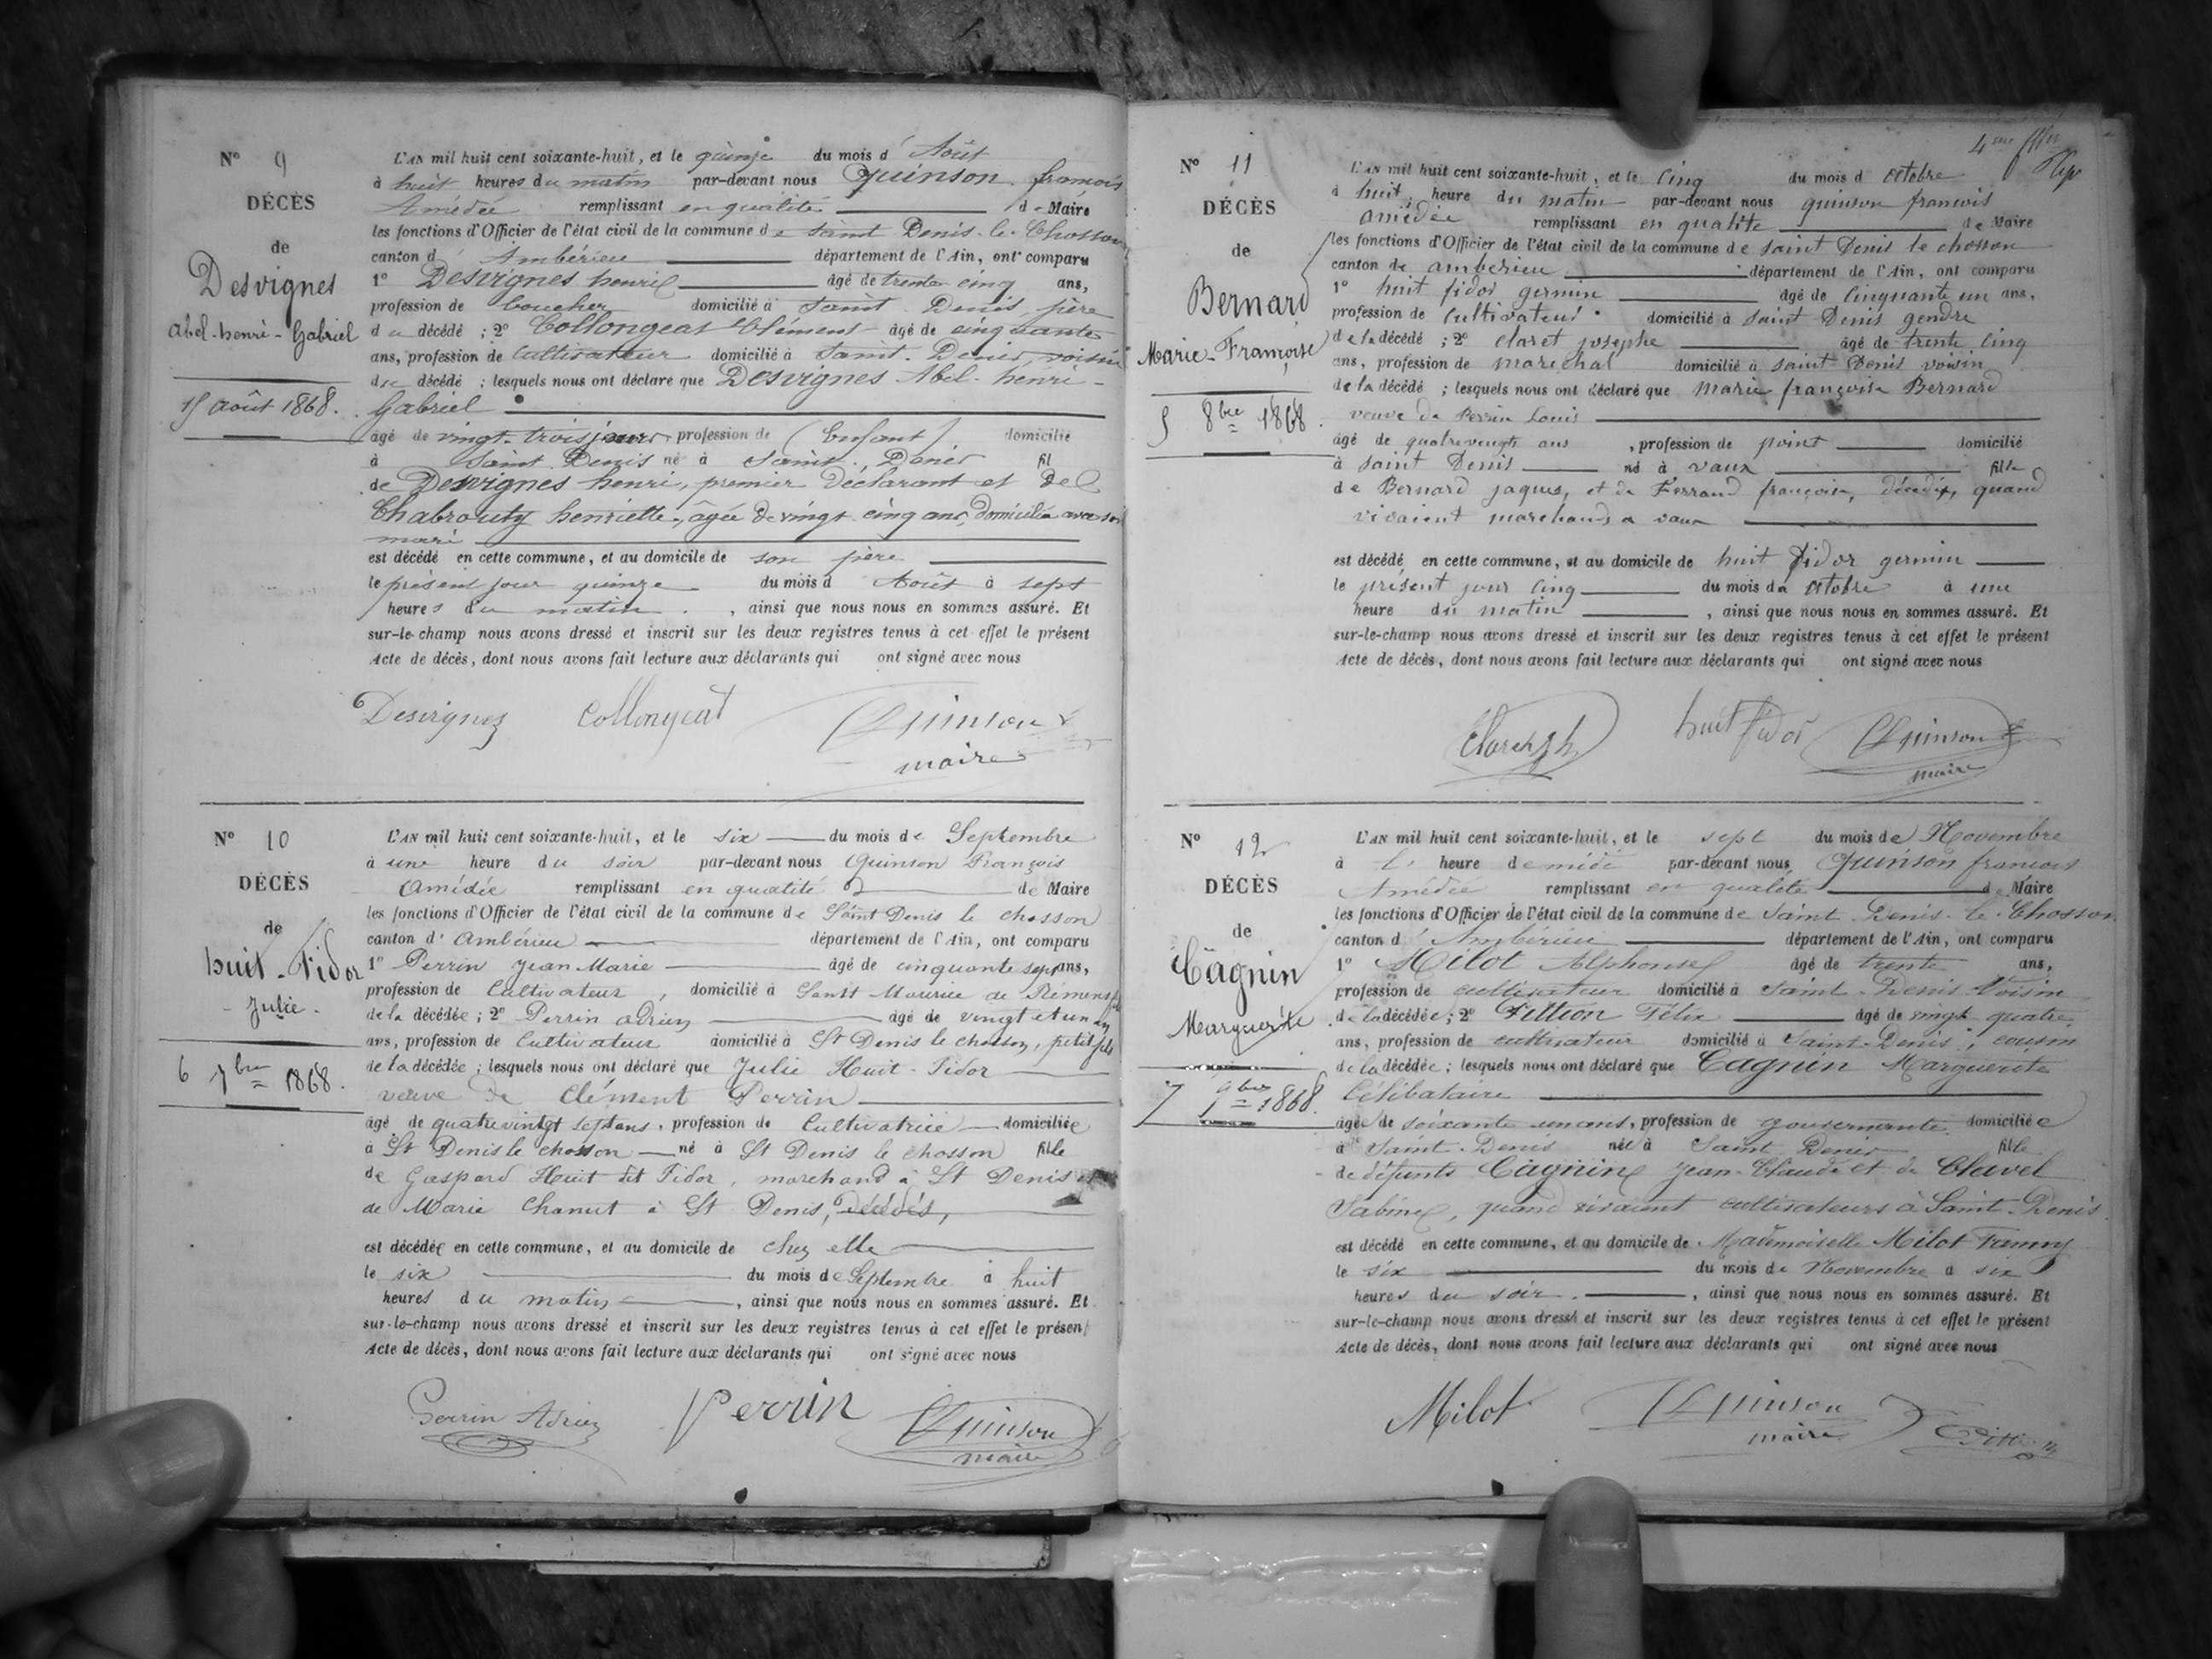 N° 9
DÉCÈS
de
Desvignes
Abel-henri-Gabriel
15 août 1868.
L'AN mil huit cent soixante-huit, et le quinze du mois d'Août
à huit heures du matin par-devant nous Quinson françois
Amédée remplissant en qualité de Maire
les fonctions d'Officier de l'état civil de la commune de saint Denis-le-Chosson
canton d'Ambérieu département de l'Ain, ont comparu
1° Desvignes henri âgé de trente cinq ans,
profession de boucher domicilié à Saint Denis, père
du décédé ; 2° Collongeat Clément âgé de cinquante
ans, profession de cultivateur domicilié à Saint-Denis, voisin
du décédé ; lesquels nous ont déclaré que Desvignes Abel-henri-
Gabriel
âgé de vingt-trois jours profession de (Enfant) domicilié
à Saint Denis né à Saint Denis fil
de Desvignes henri, premier déclarant et de
Chabrouty henriette, âgée de vingt cinq ans, domiciliée avec son
mari
est décédé en cette commune, et au domicile de son père
le présent jour quinze du mois d Août à sept
heures du matin, ainsi que nous nous en sommes assuré. Et
sur-le-champ nous avons dressé et inscrit sur les deux registres tenus à cet effet le présent
Acte de décès, dont nous avons fait lecture aux déclarants qui ont signé avec nous
Desvignes Collongeat Quinson
maire
N° 10
DÉCÈS
de
huit-Fidor
-Julie-
6 7bre 1868.
L'AN mil huit cent soixante-huit, et le six du mois de Septembre
à une heure du soir par-devant nous Quinson François
Amédée remplissant en qualité de Maire
les fonctions d'Officier de l'état civil de la commune de Saint Denis le chosson
canton d'Ambérieu département de l'Ain, ont comparu
1° Perrin Jean Marie âgé de cinquante sept ans,
profession de Cultivateur, domicilié à Saint Maurice de Rémens
de la décédée ; 2° Perrin Adrien âgé de vingt et un
ans, profession de Cultivateur domicilié à St Denis le chosson, petit fils
de la décédée ; lesquels nous ont déclaré que Julie Huit-Fidor
veuve de Clément Perrin
âgé de quatrevintgt sept ans, profession de Cultivatrice domiciliée
à St Denis le chosson né à St Denis le chosson fille
de Gaspard Huit dit Fidor, marchand à St Denis et
de Marie Chanut à St Denis, décédés,
est décédée en cette commune, et au domicile de chez elle
le six du mois de Septembre à huit
heures du matin, ainsi que nous nous en sommes assuré. Et
sur-le-champ nous avons dressé et inscrit sur les deux registres tenus à cet effet le présent
Acte de décès, dont nous avons fait lecture aux déclarants qui ont signé avec nous
Perrin Adrien Perrin Quinson
maire
4me
N° 11
DÉCÈS
de
Bernard
Marie-Françoise
5 8bre 1868.
L'AN mil huit cent soixante-huit, et le cinq du mois d octobre
à huit heure du matin par-devant nous quinson francois
amédée remplissant en qualité de Maire
les fonctions d'Officier de l'état civil de la commune de saint Denis le chosson
canton de amberieu département de l'Ain, ont comparu
1° huit fidor germin âgé de cinquante un ans,
profession de cultivateur domicilié à saint Denis gendre
de la décédé ; 2° claret josephe âgé de trente cinq
ans, profession de marechal domicilié à saint Denis voisin
de la décédé ; lesquels nous ont déclaré que marie françoise Bernard
veuve de Perrin Louis
âgé de quatrevingts ans, profession de point domicilié
à saint Denis né à vaux fille
de Bernard jaques, et de Ferrand françoise, décédés, quand
vivaient marchands a vaux
est décédé en cette commune, et au domicile de huit fidor germin
le présent jour cinq du mois da octobre à une
heure du matin, ainsi que nous nous en sommes assuré. Et
sur-le-champ nous avons dressé et inscrit sur les deux registres tenus à cet effet le présent
Acte de décès, dont nous avons fait lecture aux déclarants qui ont signé avec nous
huit fidor Quinson
maire
N° 12
DÉCÈS
de
Cagnin
Marguerite
7 9bre 1868.
L'AN mil huit cent soixante-huit, et le sept du mois de Novembre
à l' heure de midi par-devant nous Quinson francois
Amédée remplissant en qualité de Maire
les fonctions d'Officier de l'état civil de la commune de Saint-Denis-le-Chosson
canton d'Ambérieu département de l'Ain, ont comparu
1° Milot Alphonse âgé de trente ans,
profession de cultivateur domicilié à Saint-Denis Voisin
de la décédée ; 2° Pittion Félix âgé de vingt quatre
ans, profession de cultivateur domicilié à Saint-Denis, cousin
de la décédée ; lesquels nous ont déclaré que Cagnin Marguerite
Célibataire
âgée de soixante un ans, profession de gouvernante domiciliée
à Saint-Denis née à Saint Denis fille
de défunts Cagnin Jean-Claude et de Clavel
Sabine, quand vivaient cultivateurs à Saint-Denis
est décédé en cette commune, et au domicile de Mademoiselle Milot Fanny
le six du mois de Novembre à six
heures du soir, ainsi que nous nous en sommes assuré. Et
sur-le-champ nous avons dressé et inscrit sur les deux registres tenus à cet effet le présent
Acte de décès, dont nous avons fait lecture aux déclarants qui ont signé avec nous
Milot Quinson
maire